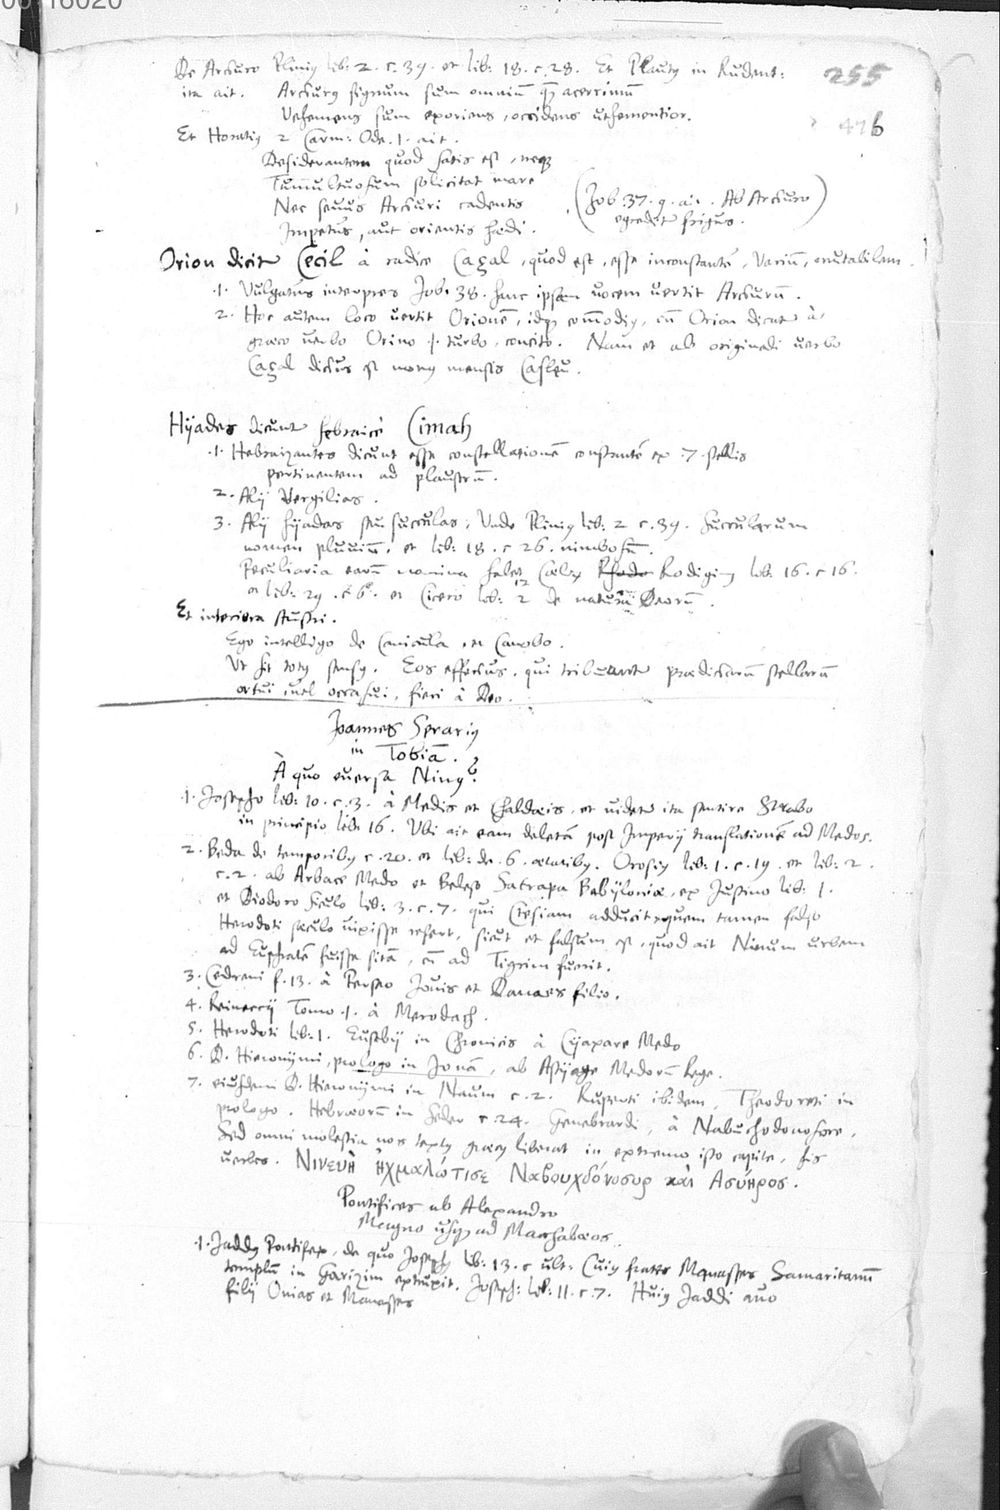 00 16020
De Arcturo Plinius lib: 2. c. 39. et lib: 18. c. 28. Et Plautus in Rudent:
255
ita ait. Arcturus signum sum omniū q̃ acerrimū
Vehemens sum exoriens, occidens vehementior.
476
Et Horatius 2 Carm: Ode. 1. ait.
Desiderantem quod satis est, neq3
Tumultuosum solicitat mare
Nec sæuus Arcturi cadentis
(Job. 37. 9. ait. Ab Arcturo
egredit frigus.)
Impetus, aut orientis hædi.
Orion dicit Cecil à radice Cazal, quod est, esse inconstantē, variū, mutabilem.
.1. Vulgatus interpres Job. 38. hanc ipsam uocem uertit Arcturū.
2. Hoc autem loco uertit Orionē, idq3 com̄odius, cū Orion dicat à
græco uerbo Orino .|. turbo, concito. Nam et ab originali uerbo
Cazal dictus est nomen mensis Casleu.
Hyades dicunt hebraicè Cimah
.1. Hebraizantes dicunt esse constellationē constantē ex .7. stellis
pertinentem ad plaustrū.
2. Alij Vergilias.
3. Alij hyadas seu succulas; Unde Plinius lib: 2 c. 39. succularum
nomen pluuiū, et lib: 18. c 26. nimbosū.
Peculiaria earū nomina habet Cælius Rhodo Rodiginus lib: 16. c 16.
et lib: 29. c 6. et Cicero lib: 2 de natura Deorū.
Et interiora Austri.
Ego intelligo de Canicula, et Canobo.
Ut sit totus sensus. Eos effectus, qui tribuunt prædictarū stellarū
ortui, uel occasui, fieri à Deo.
Joannes Serarius
in Tobiā.
À quo euersa Ninus?
.1. Josepho lib: 10. c. 3. à Medis et Chaldæis, et uidetur ita sentire Strabo
in principio lib: 16. Ubi ait eam deletā post Imperij translationē ad Medos.
2. Beda de temporibus c. 20. et lib: de .6. ætatibus. Orosius lib: 1. c. 19. et lib: 2.
c. 2. ab Arbace Medo et Beleso Satrapa Babyloniæ, ex Justino lib: 1.
et Diodoro Siculo lib: 3. c. 7. qui Ctesiam adducit, quem tamen falso
Herodoti sæculo uixisse refert, sicut et falsum est, quod ait Ninum urbem
ad Euphratē fuisse sitā, cū ad Tigrim fuerit.
3. Cedreni f. 13. à Perseo Jouis et Danaes filio.
4. Reineccij Tomo .1. à Merodach.
5. Herodoti lib: 1. Eusebij in Chronicis à Cyaxare Medo
6. D. Hieronymi, prologo in Jonā, ab Astyage Medorū Rege.
7. eiusdem D. Hieronymi in Naum c. 2. Ruperti ibidem, Theodoreti in
prologo. Hebræorū in Seder c. 24. Genebrardi, à Nabuchodonosore,
Sed omni molestia nos textus græcus liberat in extremo isto capite, his
uerbis. Νινευὴ ἠχμαλώτισε Ναβουχδόνοσορ καὶ Ασύηρος.
Pontifices ab Alexandro
Magno usq ad Machabæos.
.1. Jaddus Pontifex, de quo Joseph lib: 13. c ult: Cuius frater Manasses Samaritanū
templū in Garizim extruxit. Joseph: lib: 11. c. 7. Huius Jaddi auo
filij Onias et Manasses